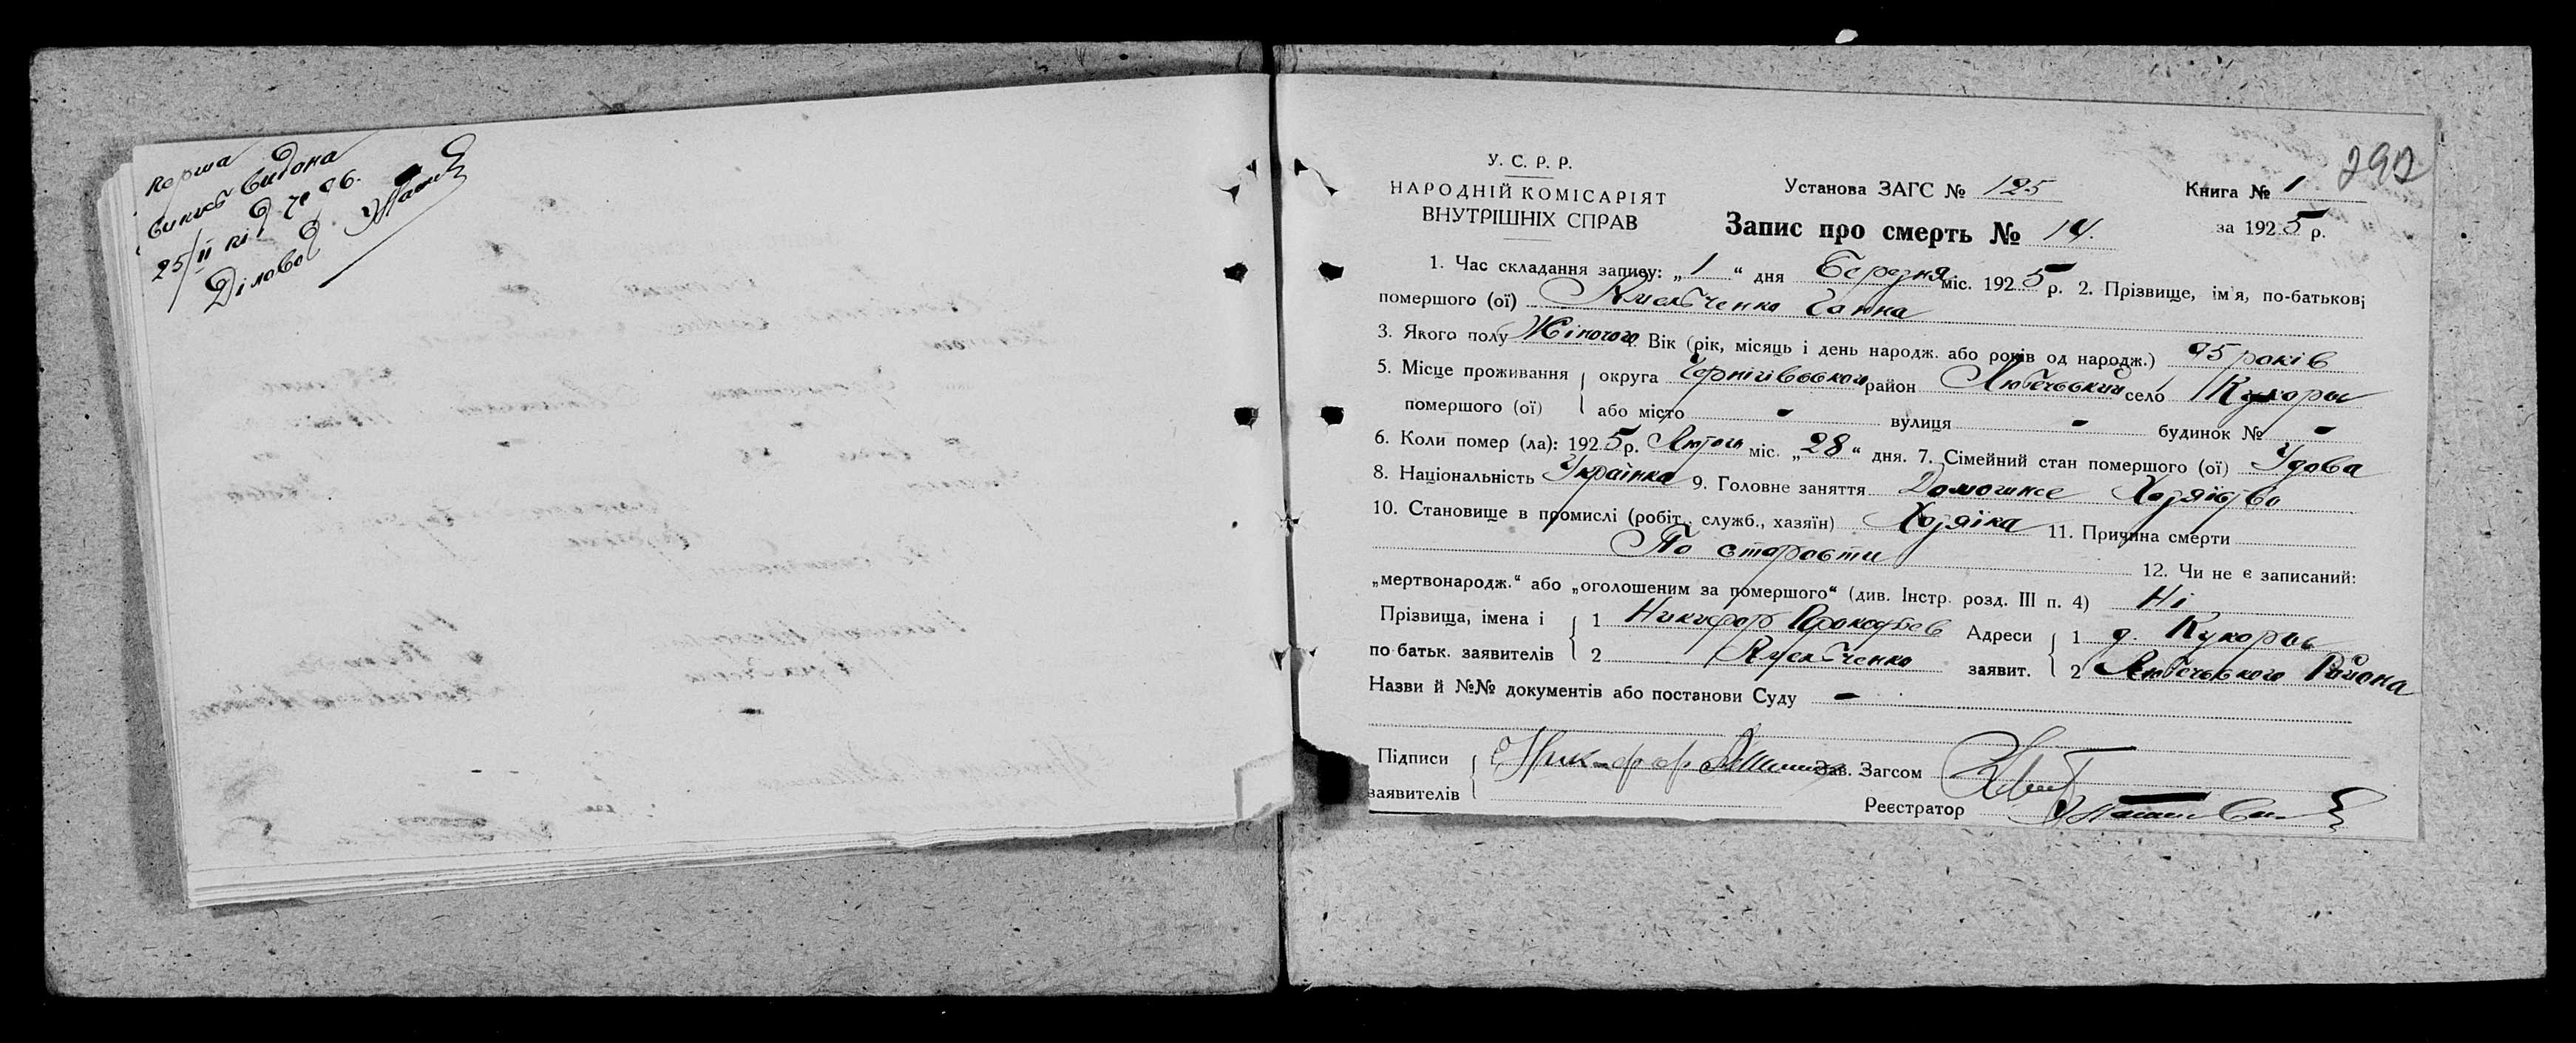 перша
виписъ видона
25/II під № 96.
Діловод
292
У. С. Р. Р.
НАРОДНІЙ КОМІСАРІЯТ
ВНУТРІШНІХ СПРАВ
Установа ЗАГС № 125
Книга № 1
Запис про смерть № 14.
за 1925 р.
1. Час складання запису: „1“ дня Березня міс. 1925 р. 2. Прізвище, ім'я, по-батькові
помершого (ої) Кмельченко Ганна
3. Якого полу Жіночого 4. Вік (рік, місяць і день народж. або років од народж.) 95 років
5. Місце проживання помершого (ої) округа Чернігівського район Любечський село Кукоры
або місто - вулиця - будинок № -
6. Коли помер (ла): 1925 р. Лютого міс. „28“ дня. 7. Сімейний стан помершого (ої) Удова
8. Національність Українка 9. Головне заняття Домошнє Хозяїство
10. Становище в промислі (робіт., служб., хазяїн) Хозяіка 11. Причина смерти
По старости 12. Чи не є записаний:
„мертвонародж.“ або „оголошеним за помершого“ (див. Інстр. розд. III п. 4) Ні
Прізвища, імена і по батьк. заявителів 1 Никифор Прокофьев Адреси заявит. 1 д. Кукоры
2 Кмельченко 2 Любечського Района
Назви й №№ документів або постанови Суду -
Підписи заявителів Никифор Зав. Загсом
Реєстратор